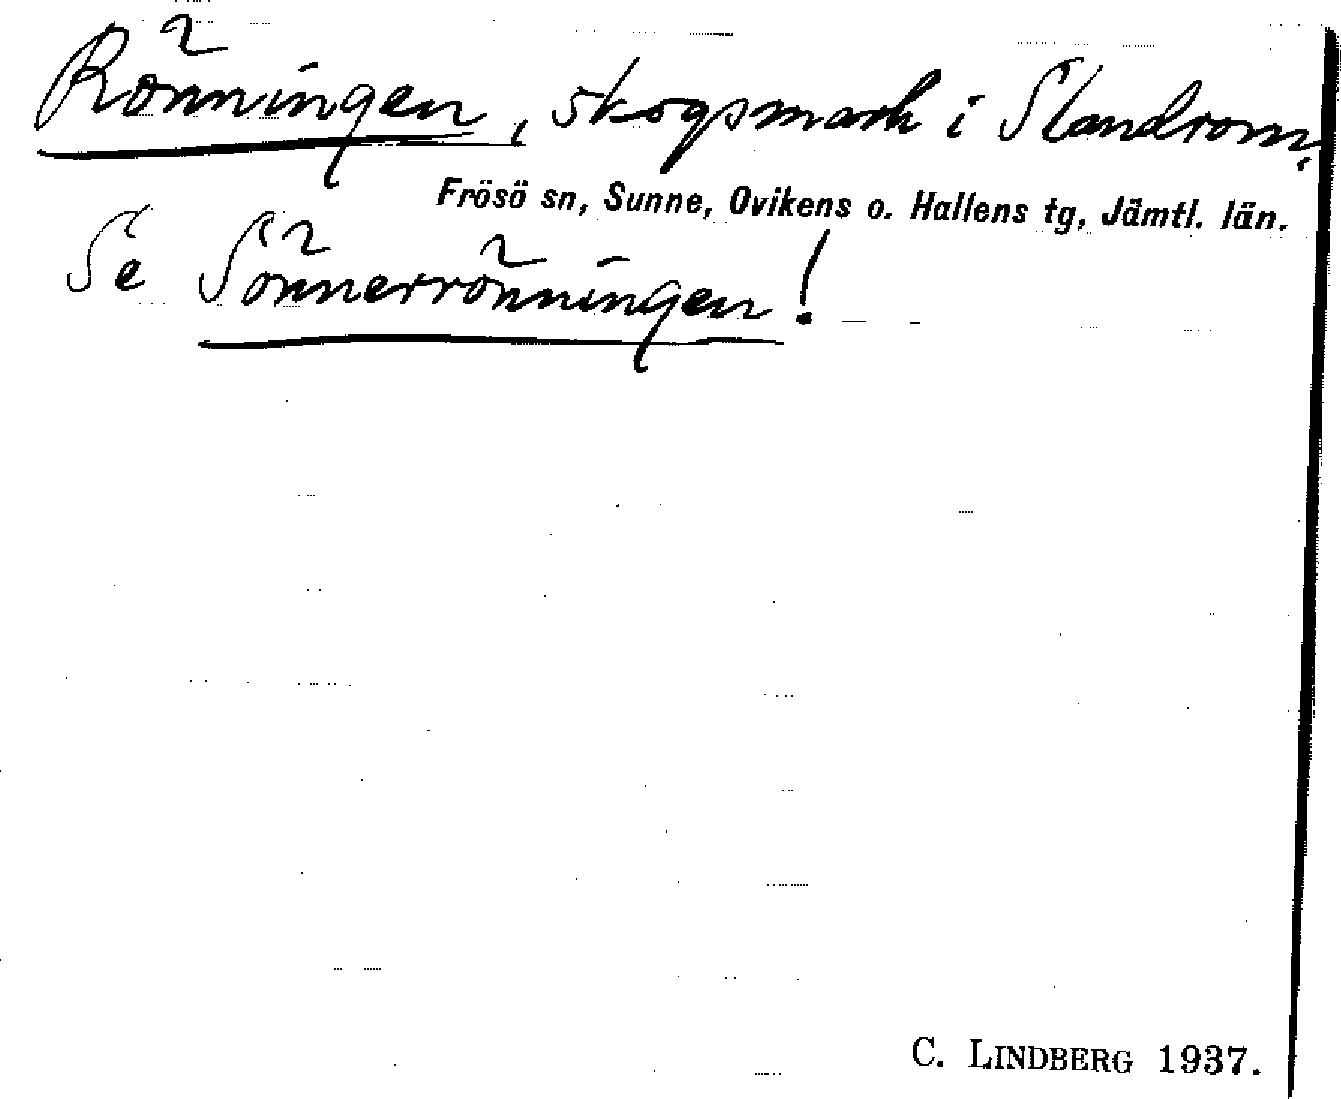 Rönningen, skogsmark i Slandrom,
Frösö sn, Sunne, Ovikens o. Hallens tg, Jämtl. län.
Se Sönnerrönningen!
C. LINDBERG 1937.